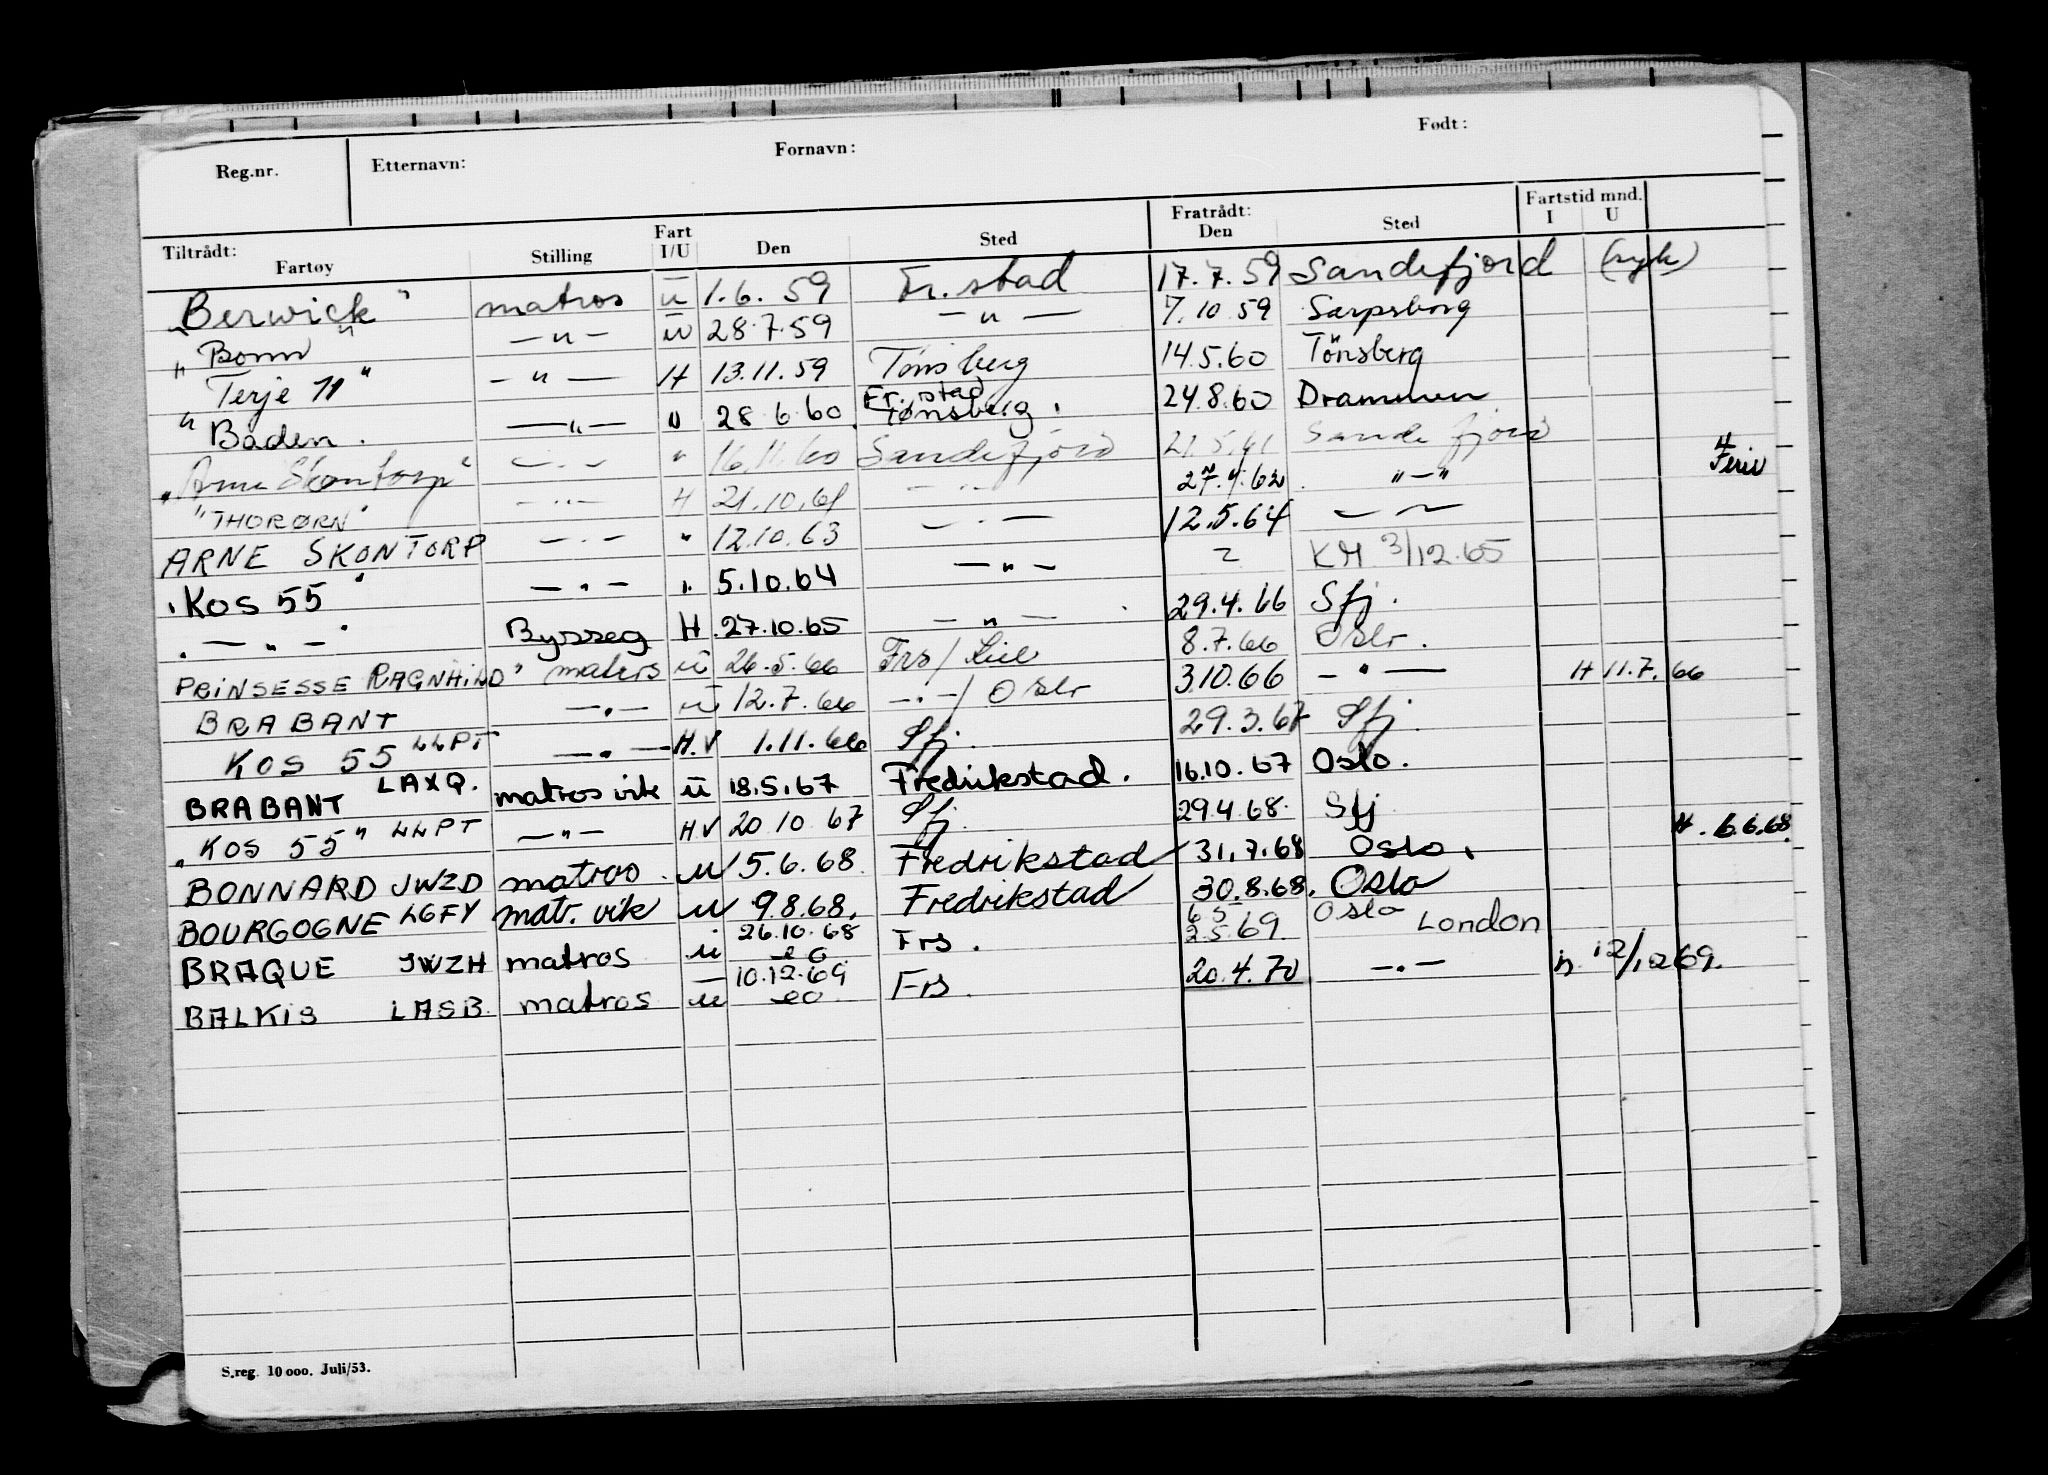 Reg.nr. Etternavn: Fornavn: Født:
Tiltrådt: Fratrådt: Fartstid mnd.
Fartøy Stilling Fart I/U Den Sted Den Sted I U
"Berwick" matros u 1.6.59 Fr.stad 17.7.59 Sandefjord (syk)
"Bonn" —"— u 28.7.59 —"— 7.10.59 Sarpsborg
"Terje 11" —"— H 13.11.59 Tønsberg 14.5.60 Tönsberg
Fr.stad
Baden. —"— u 28.6.60 Tønsberg. 24.8.60 Drammen
"Arne Skontorp" —"— " 16.11.60 Sandefjord 21.5.61 Sandefjord
"THORØRN" —"— H 21.10.61 —"— 27.4.62 "—" Ferie
ARNE SKONTORP —"— " 12.10.63 —"— 12.5.64 —"—
"KOS 55" —"— " 5.10.64 —"— KM 3/12.65
"—"—" Bysseg H 27.10.65 —"— 29.4.66 Sfj.
PRINSESSE RAGNHILD" matros u 26.5.66 Frs/Kiel 8.7.66 Oslo.
BRABANT —"— u 12.7.66 —"—/Oslo 3.10.66 —"— H 11.7.66
KOS 55 LLPT —"— H.V 1.11.66 Sfj. 29.3.67 Sfj.
BRABANT LAXQ. matros vik u 18.5.67 Fredrikstad. 16.10.67 Oslo.
"KOS 55" LLPT —"— H V 20.10.67 Sfj. 29.4.68 Sfj
BONNARD JWZD matros u 5.6.68. Fredrikstad 31.7.68 Oslo. H. 6.6.68.
BOURGOGNE LGFY matr. vik u 9.8.68. Fredrikstad 30.8.68. Oslo
BRAQUE JWZH matros u 26.10.68 eo Frs. 6 5 2.5.69. Oslo London
BALKIS LASB. matros u 10.12.69 eo Frs. 20.4.70 —"— 12/12 69.
S.reg. 10 000. Juli/53.